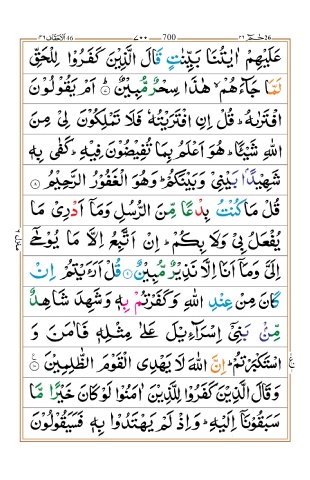 الاحقاف ٤٦ ٧٠٠ 700 حٰمٓ 26
عَلَيْهِمْ اٰيٰتُنَا بَيِّنٰتٍ قَالَ الَّذِيْنَ كَفَرُوْا لِلْحَقِّ
لَمَّا جَآءَهُمْ ۙ هٰذَا سِحْرٌ مُّبِيْنٌ ؕ ۷ اَمْ يَقُوْلُوْنَ
افْتَرٰىهُ ؕ قُلْ اِنِ افْتَرَيْتُهٗ فَلَا تَمْلِكُوْنَ لِيْ مِنَ
اللّٰهِ شَيْـًٔا ؕ هُوَ اَعْلَمُ بِمَا تُفِيْضُوْنَ فِيْهِ ؕ كَفٰى بِهٖ
شَهِيْدًۢا بَيْنِيْ وَبَيْنَكُمْ ؕ وَهُوَ الْغَفُوْرُ الرَّحِيْمُ ۸
قُلْ مَا كُنْتُ بِدْعًا مِّنَ الرُّسُلِ وَمَاۤ اَدْرِيْ مَا
يُفْعَلُ بِيْ وَلَا بِكُمْ ؕ اِنْ اَتَّبِعُ اِلَّا مَا يُوْحٰۤى
اِلَيَّ وَمَاۤ اَنَا اِلَّا نَذِيْرٌ مُّبِيْنٌ ۹ قُلْ اَرَءَيْتُمْ اِنْ
كَانَ مِنْ عِنْدِ اللّٰهِ وَكَفَرْتُمْ بِهٖ وَشَهِدَ شَاهِدٌ
مِّنْۢ بَنِيْۤ اِسْرَآءِيْلَ عَلٰى مِثْلِهٖ فَاٰمَنَ وَ
اسْتَكْبَرْتُمْ ؕ اِنَّ اللّٰهَ لَا يَهْدِي الْقَوْمَ الظّٰلِمِيْنَ ۱۰
وَقَالَ الَّذِيْنَ كَفَرُوْا لِلَّذِيْنَ اٰمَنُوْا لَوْ كَانَ خَيْرًا مَّا
سَبَقُوْنَاۤ اِلَيْهِ ؕ وَاِذْ لَمْ يَهْتَدُوْا بِهٖ فَسَيَقُوْلُوْنَ